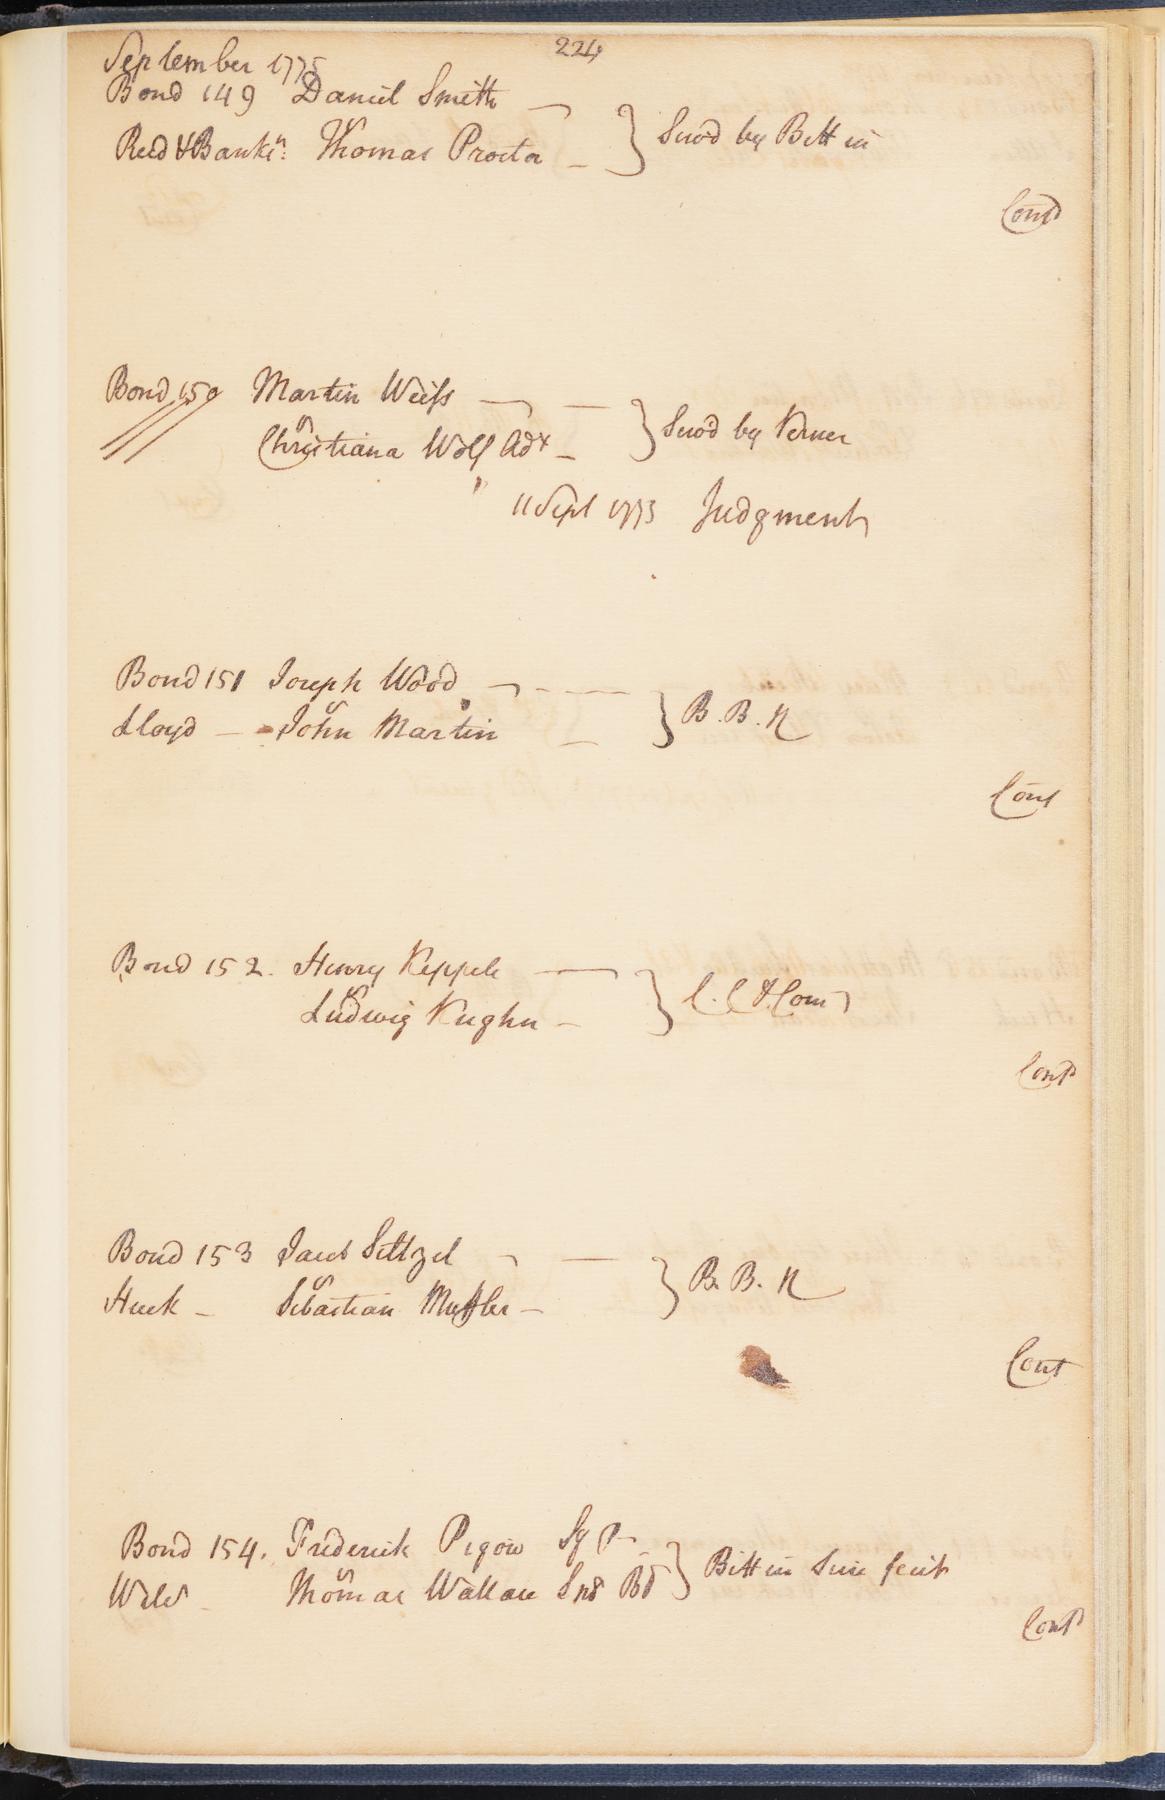 224
September 1775
Bond 149 Daniel Smith
vs
Reed & Banksn: Thomas Procter } Sum'd by Bitt in
Cont
Bond 150 Martin Weiss
vs
Christiana Wolf Adx } Sum'd by Verner
11 Sept 1773 Judgment
Bond 151 Joseph Wood
vs
Lloyd John Martin } B. B. N
Cont
Bond 152. Henry Kepple
vs
Ludwig Kughn } C. C & Com
Cont
Bond 153 Jacob Seltzel
vs
Huck Sebastian Muffler } B. B. N
Cont
Bond 154. Frederick Pigow
vs
Thomas Wallace } Bitt in
Cont